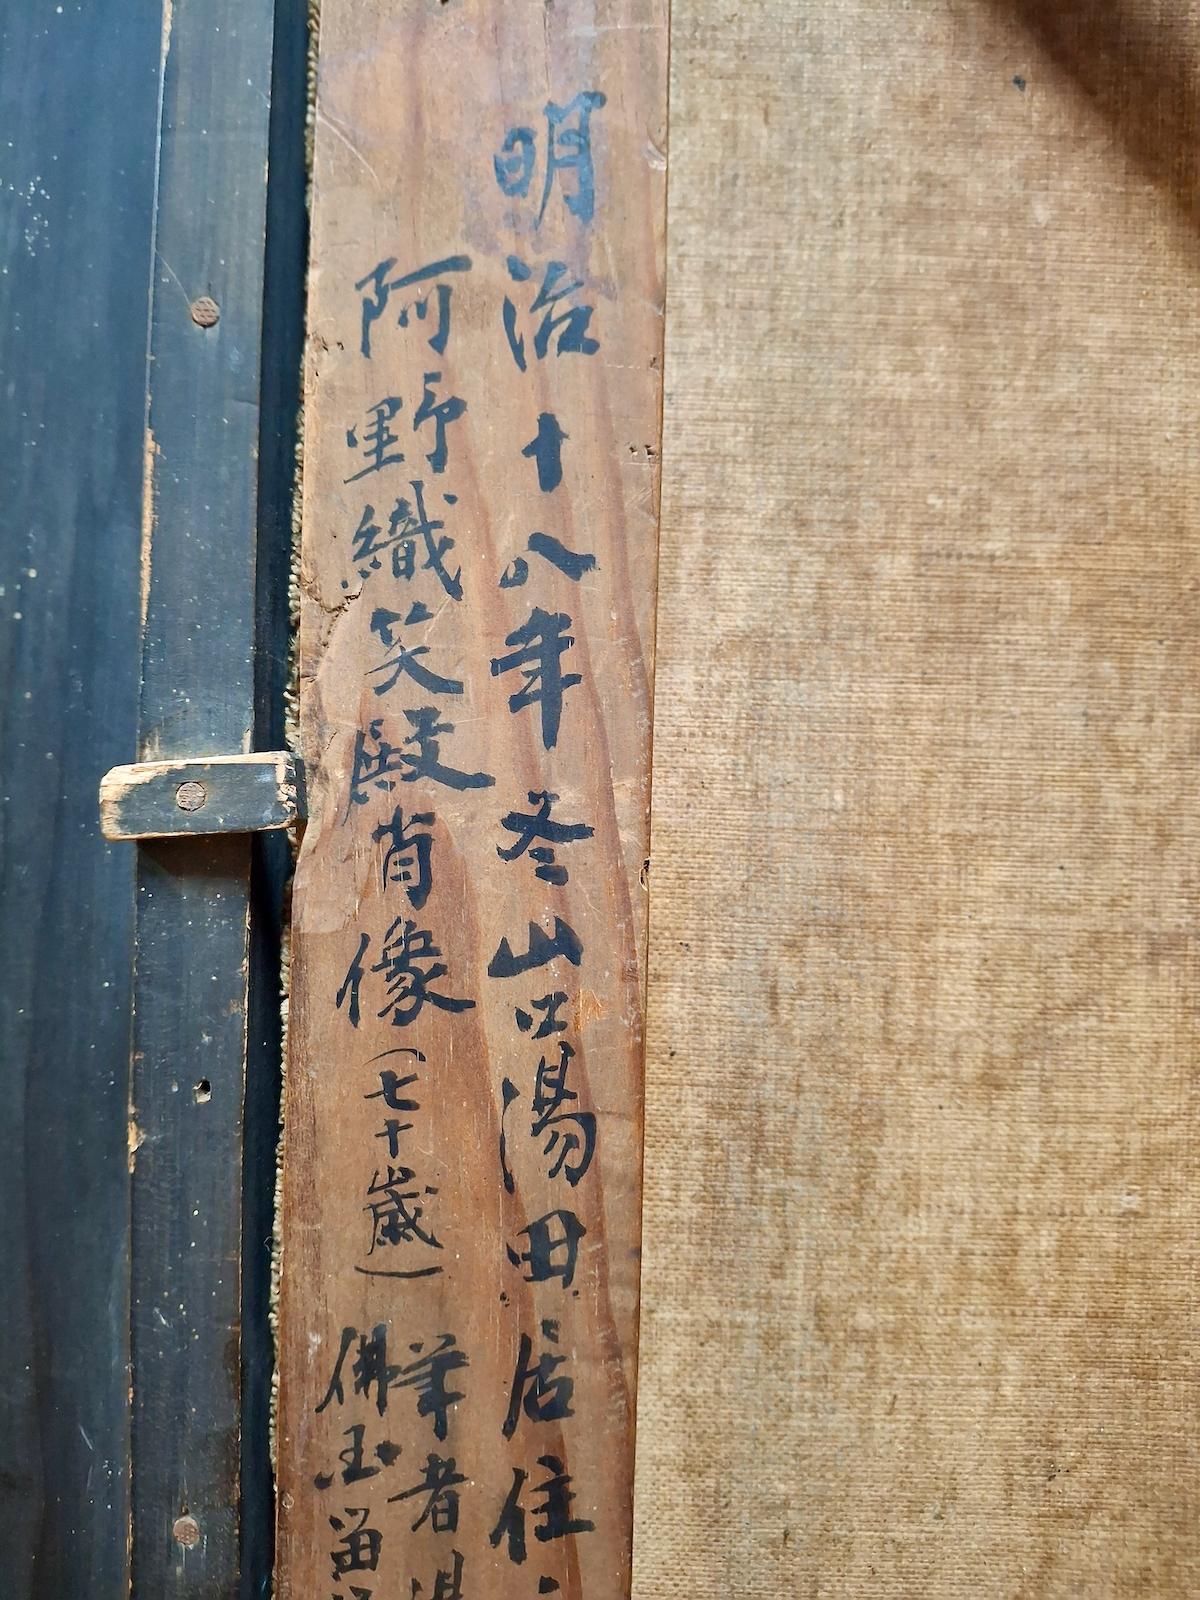 明治十八年冬山口湯田居住
阿野織笑殿肖像(七十歳)
筆者
佛国留